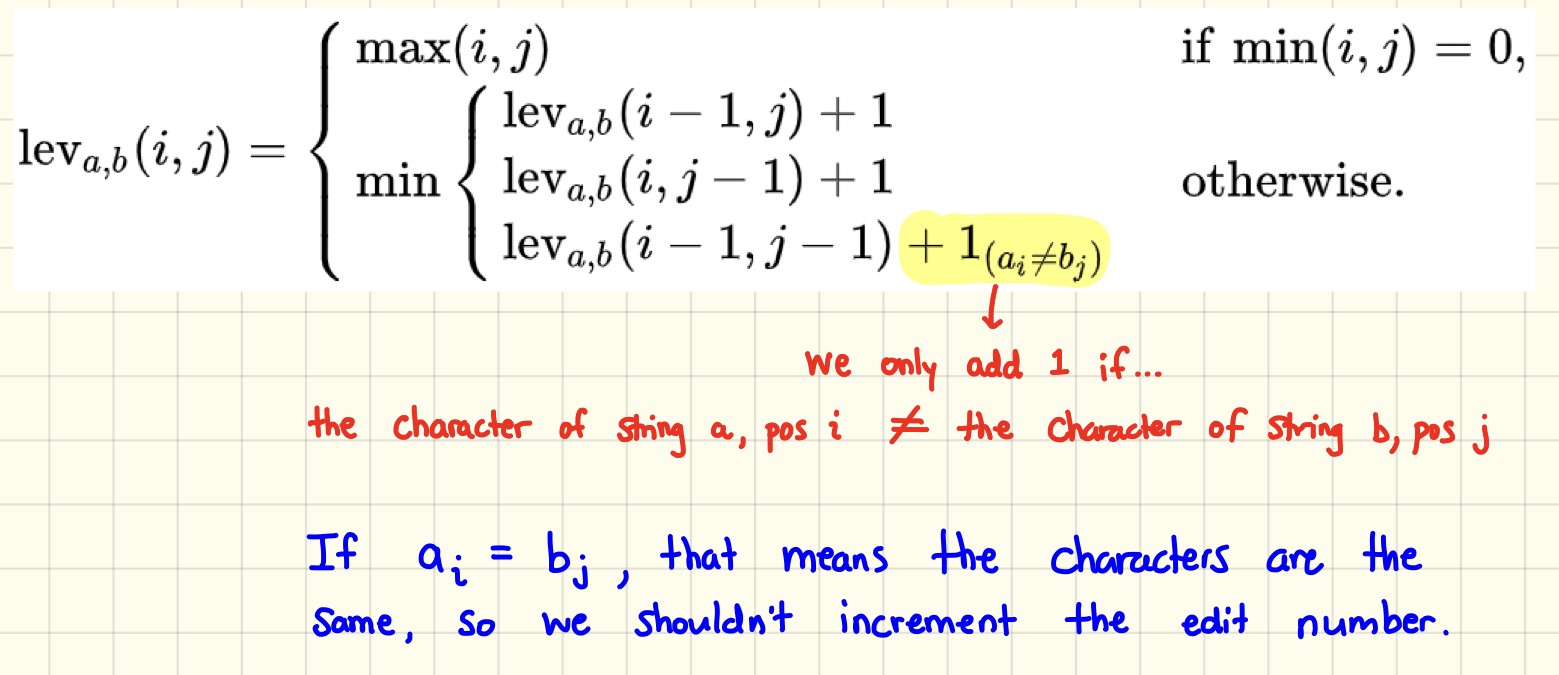 max(i, j) if min(i, j) = 0,
lev_{a,b}(i − 1, j) + 1
lev_{a,b}(i, j) = min lev_{a,b}(i, j − 1) + 1 otherwise.
lev_{a,b}(i − 1, j − 1) + 1_{(a_i≠b_j)}
we only add 1 if...
the character of string a, pos i ≠ the character of string b, pos j
If a_i = b_j, that means the characters are the
same, so we shouldn't increment the edit number.